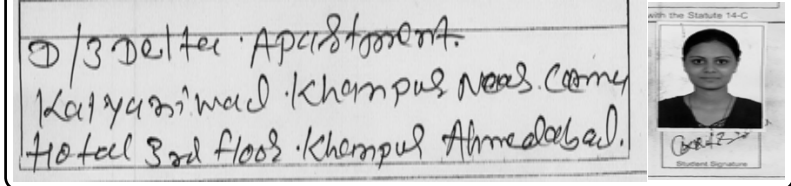 D/3 Delta Apartment.
Kalyaniwad Khanpur Near Cama
Hotel 3rd floor Khanpur Ahmedabad.
with the Statute 14-C
Student Signature